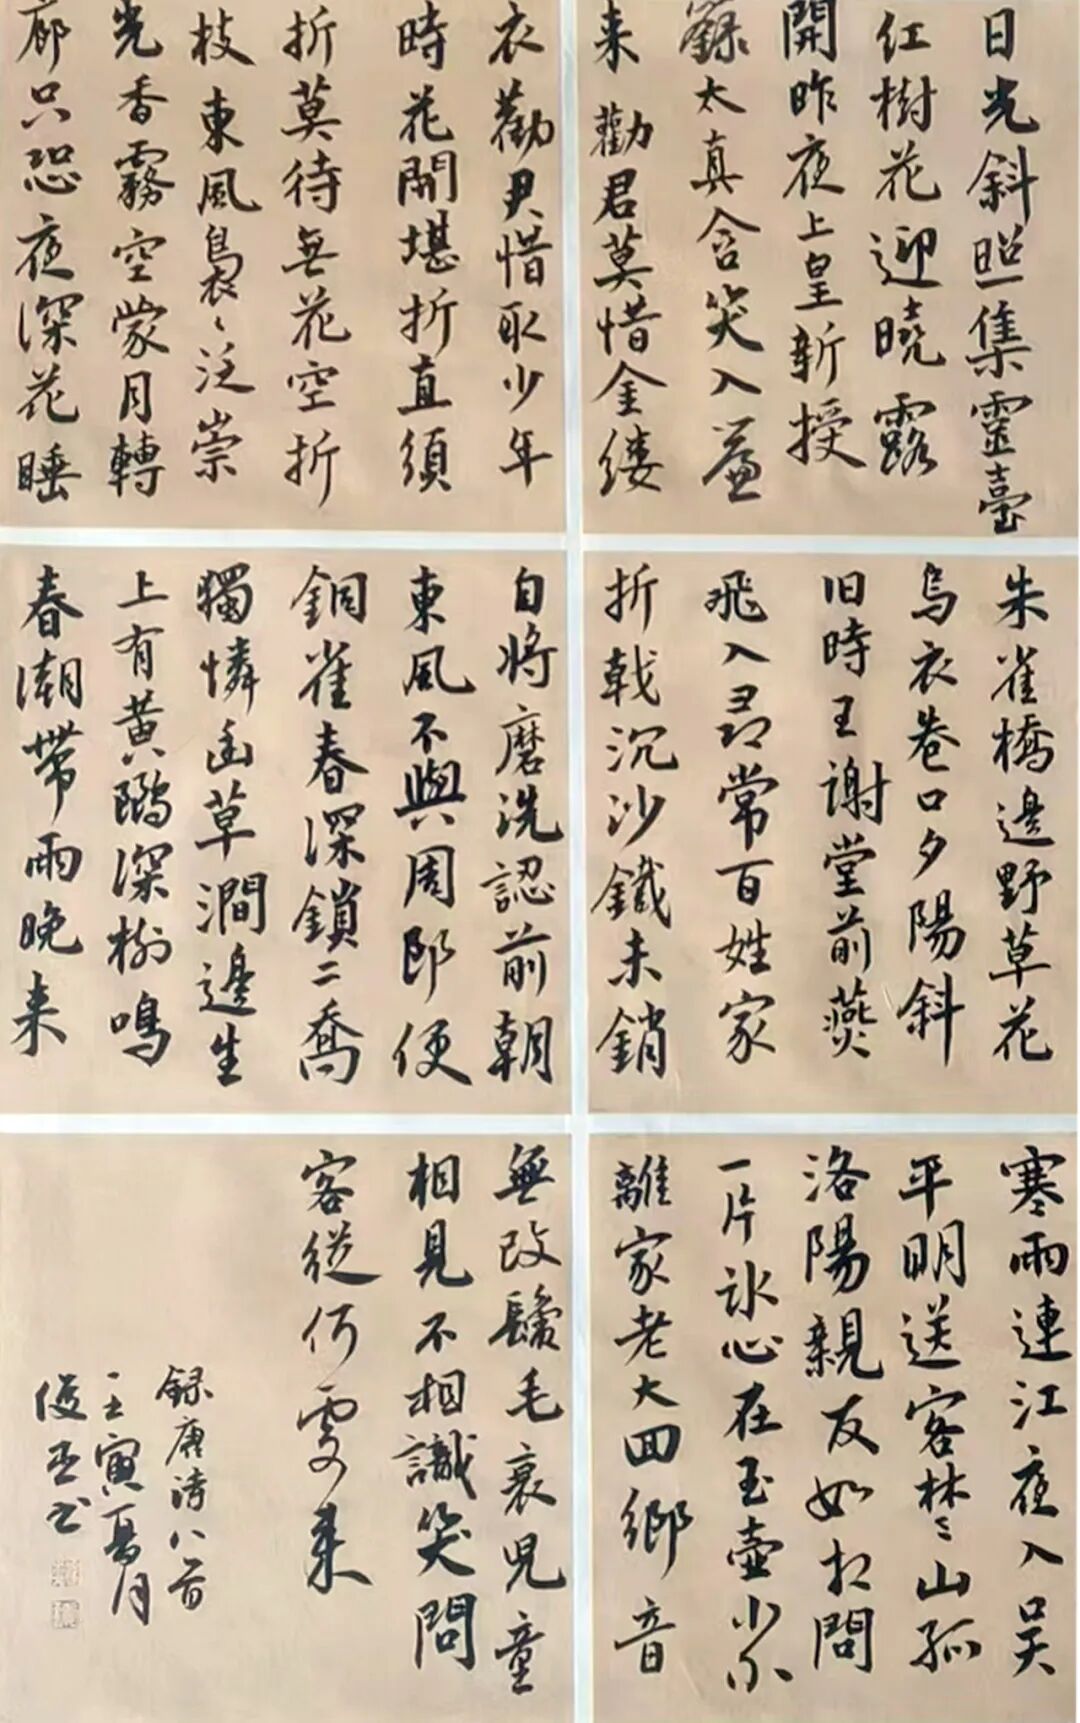 日光斜照集靈臺
红樹花迎曉露
開昨夜上皇新授
籙太真含笑入簾
来勸君莫惜金缕
衣勸君惜取少年
時花開堪折直須
折莫待無花空折
枝東風裊〻泛崇
光香霧空蒙月轉
廊只恐夜深花睡
朱雀橋邊野草花
烏衣巷口夕陽斜
旧時王謝堂前燕
飛入尋常百姓家
折戟沉沙鐵未銷
自將磨洗認前朝
東風不與周郎便
銅雀春深鎖二喬
獨憐幽草澗邊生
上有黄鸝深樹鳴
春潮帶雨晚来
寒雨連江夜入吴
平明送客楚山孤
洛陽親友如相問
一片冰心在玉壺少小
離家老大回鄉音
無改鬢毛衰兒童
相見不相識笑問
客從何處来
録唐詩八首
壬寅夏月
俊书